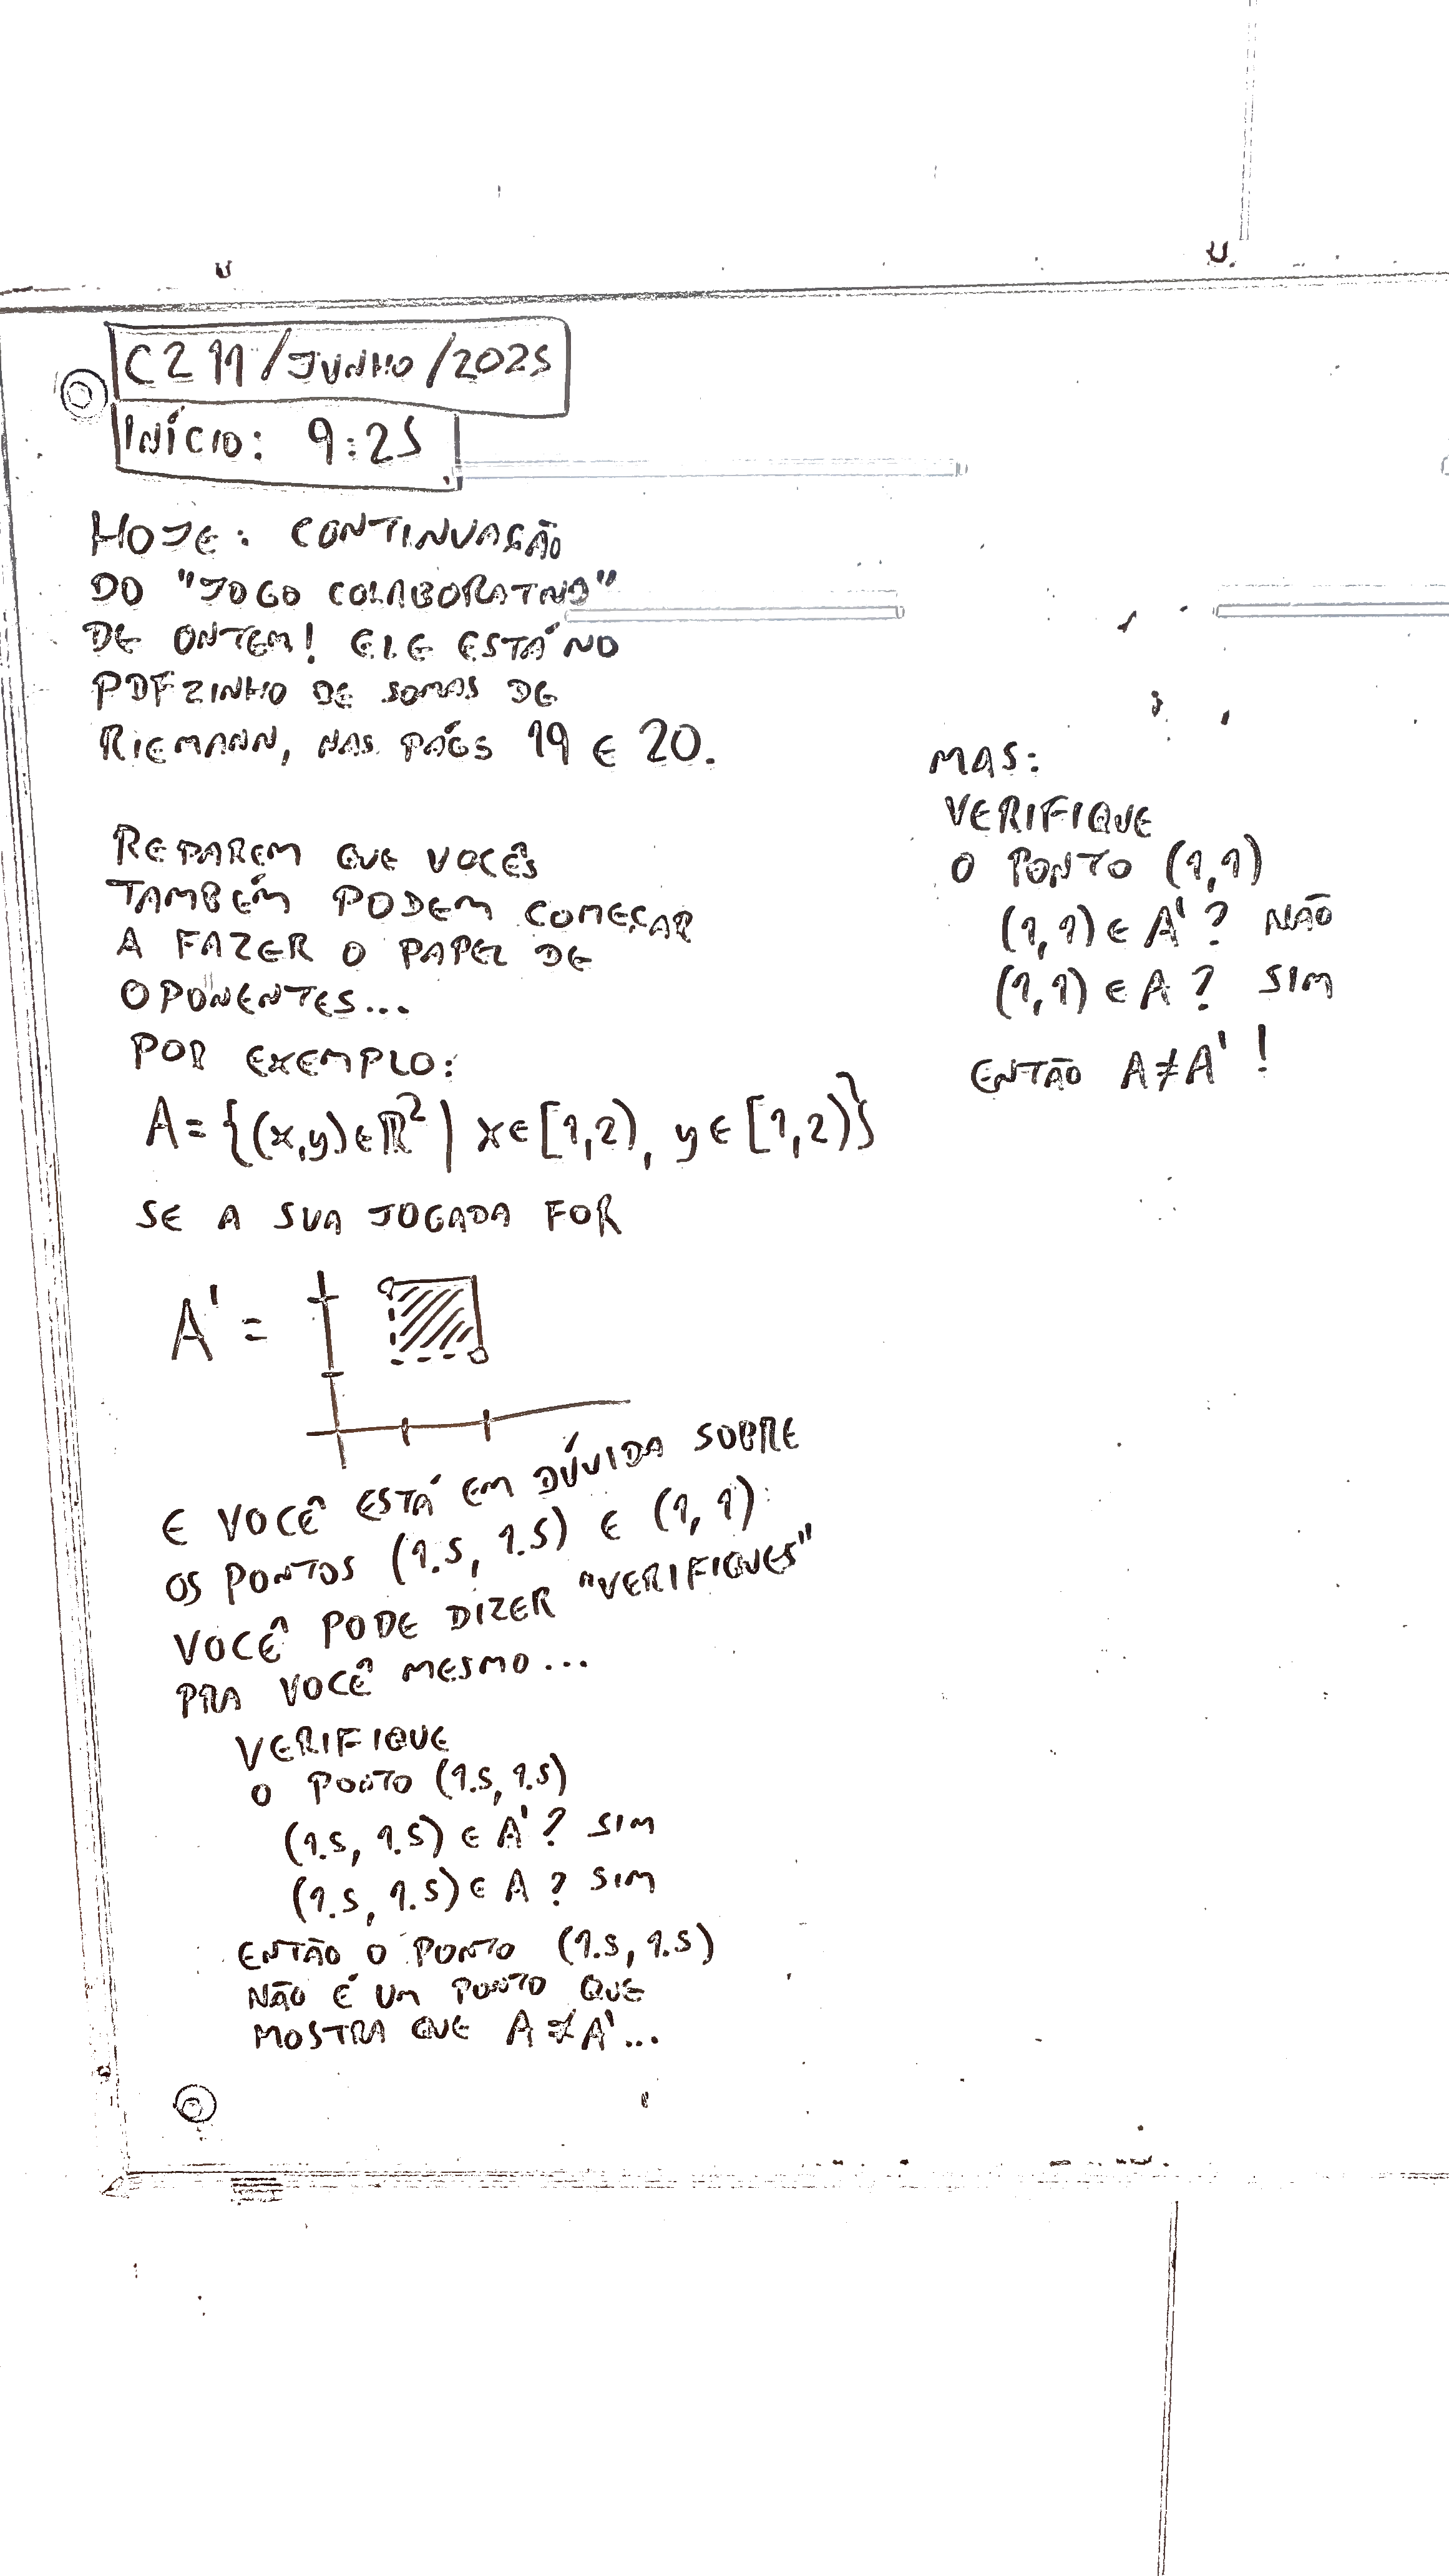 C2 11/JUNHO/2025
INÍCIO: 9:25
HOJE: CONTINUAÇÃO
DO "JOGO COLABORATIVO"
DE ONTEM! ELE ESTÁ NO
PDFZINHO DE SOMAS DE
RIEMANN, NAS PÁGS 19 E 20.
REPAREM QUE VOCÊS
TAMBÉM PODEM COMEÇAR
A FAZER O PAPEL DE
OPONENTES...
POR EXEMPLO:
A = {(x,y)∈ℝ² | x∈[1,2), y∈[1,2)}
SE A SUA JOGADA FOR
A' =
E VOCÊ ESTÁ EM DÚVIDA SOBRE
OS PONTOS (1.5, 1.5) E (1, 1)
VOCÊ PODE DIZER "VERIFIQUES"
PRA VOCÊ MESMO...
VERIFIQUE
O PONTO (1.5, 1.5)
(1.5, 1.5) ∈ A'? SIM
(1.5, 1.5) ∈ A? SIM
ENTÃO O PONTO (1.5, 1.5)
NÃO É UM PONTO QUE
MOSTRA QUE A ≠ A'...
MAS:
VERIFIQUE
O PONTO (1,1)
(1,1) ∈ A'? NÃO
(1,1) ∈ A? SIM
ENTÃO A ≠ A'!